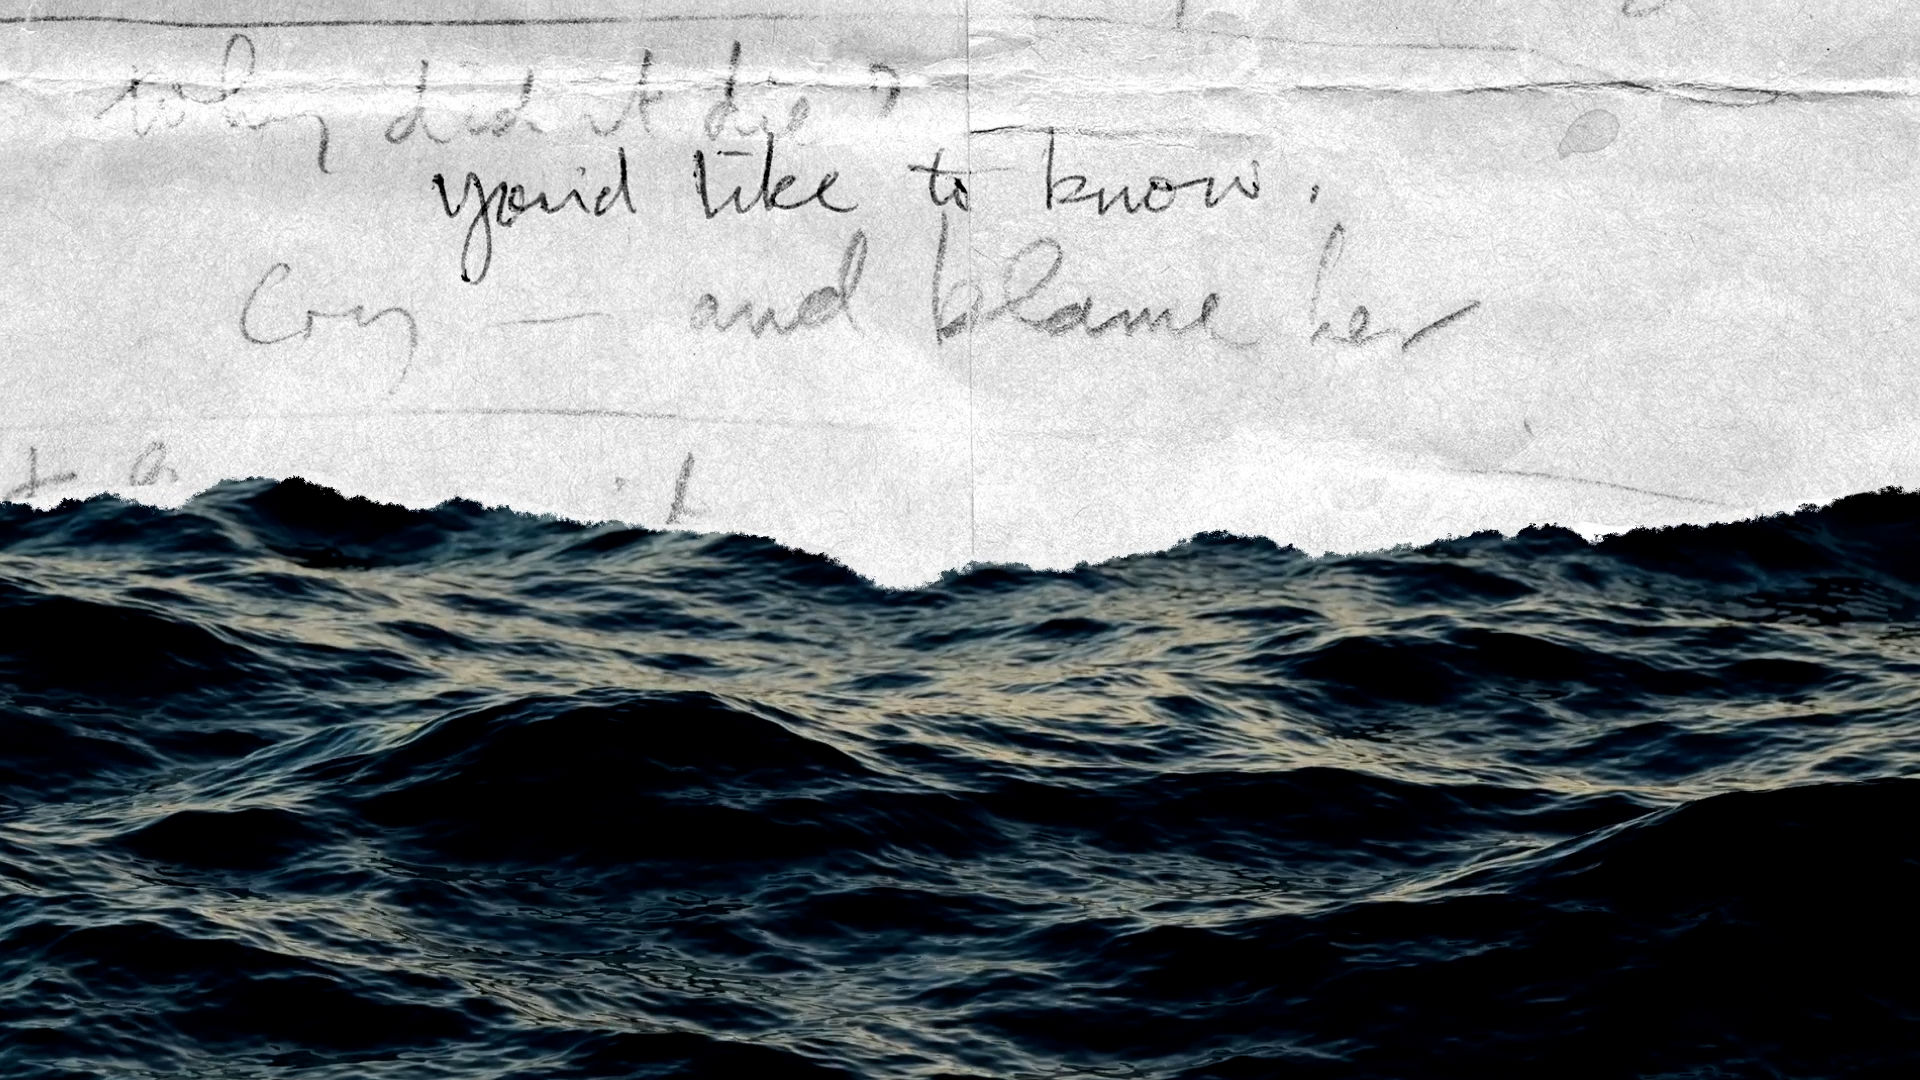 why did it die?
you'd like to know.
Cry — and blame her